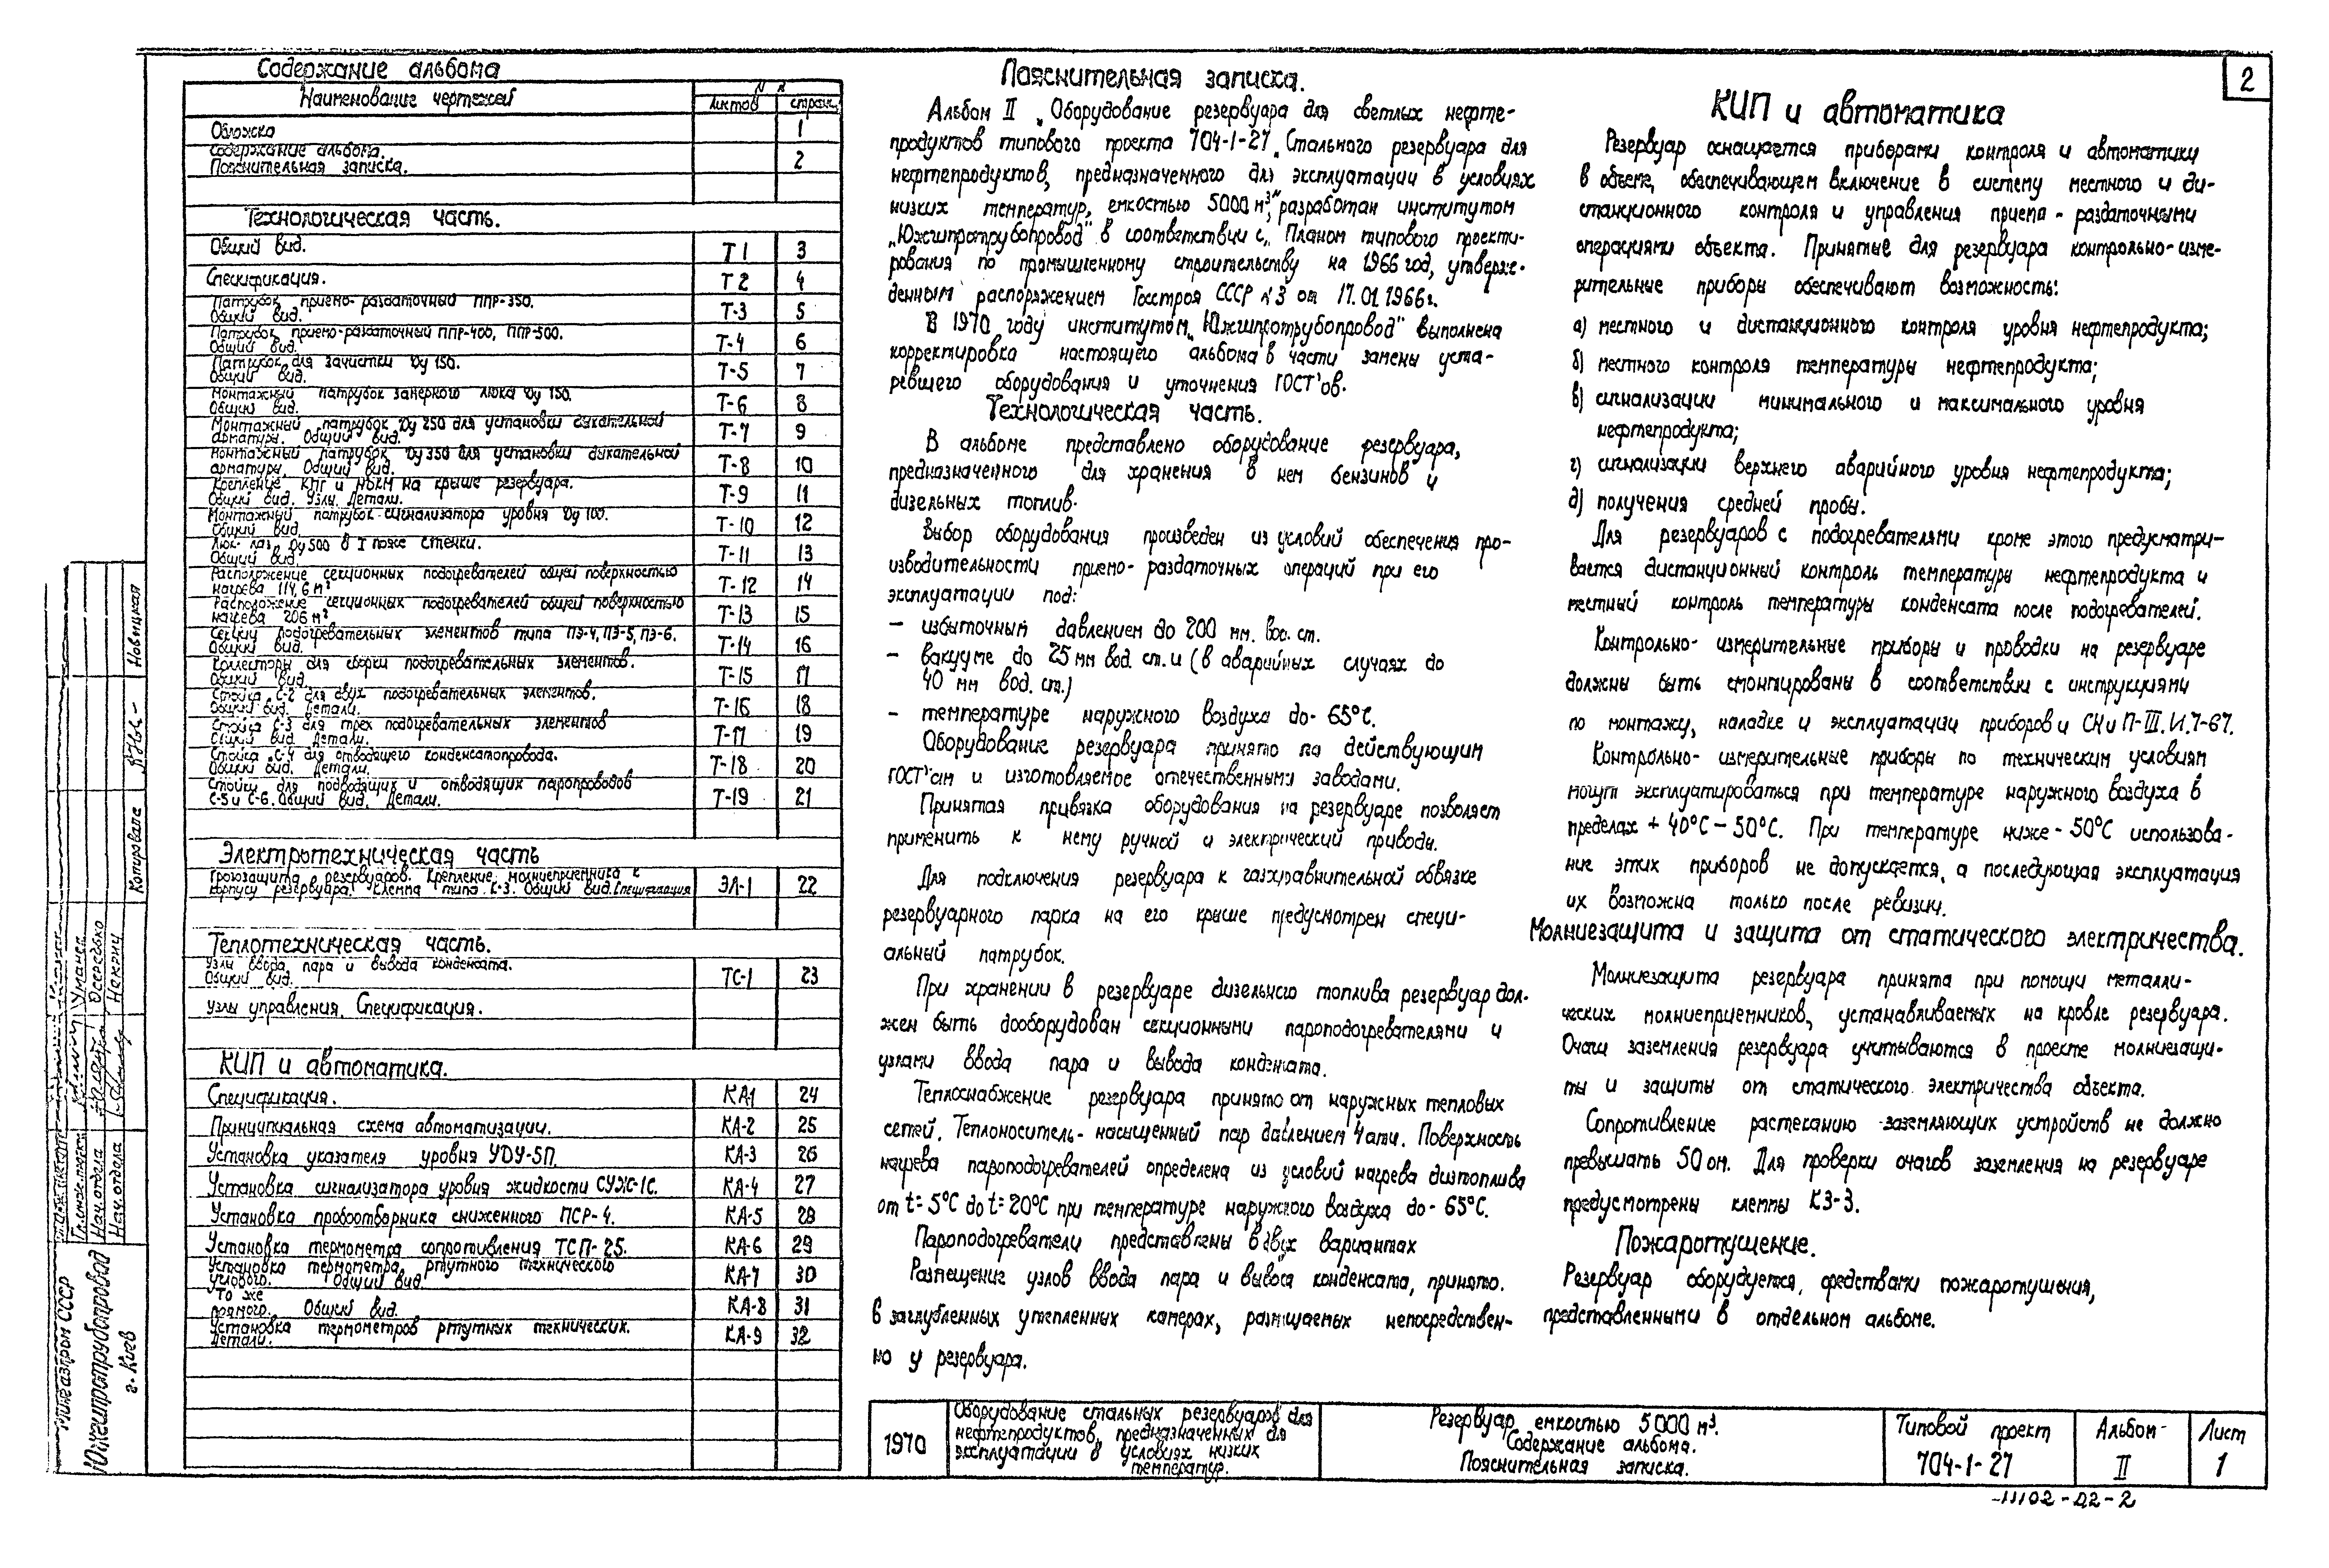 2
Содержание альбома
Наименование чертежей
N N
листов
стран.
Обложка 1
Содержание альбома.
Пояснительная записка. 2
Технологическая часть.
Общий вид. Т1 3
Спецификация. Т2 4
Патрубок приемо-раздаточный ППР-350.
Общий вид. Т-3 5
Патрубок приемо-раздаточный ППР-400, ППР-500.
Общий вид. Т-4 6
Патрубок для зачистки Dу 150.
Общий вид. Т-5 7
Монтажный патрубок замерного люка Dу 150.
Общий вид. Т-6 8
Монтажный патрубок Dу 250 для установки дыхательной
арматуры. Общий вид. Т-7 9
Монтажный патрубок Dу 350 для установки дыхательной
арматуры. Общий вид. Т-8 10
Крепление КПГ и НДКМ на крыше резервуара.
Общий вид. Узлы. Детали. Т-9 11
Монтажный патрубок сигнализатора уровня Dу 100.
Общий вид. Т-10 12
Люк-лаз Dу 500 в I поясе стенки.
Общий вид. Т-11 13
Расположение секционных подогревателей общей поверхностью
нагрева 114,6 м² Т-12 14
Расположение секционных подогревателей общей поверхностью
нагрева 206 м². Т-13 15
Секции подогревательных элементов типа ПЭ-4, ПЭ-5, ПЭ-6.
Общий вид. Т-14 16
Коллекторы для сборки подогревательных элементов.
Общий вид. Т-15 17
Стойка С-2 для двух подогревательных элементов.
Общий вид. Детали. Т-16 18
Стойка С-3 для трех подогревательных элементов
Общий вид. Детали. Т-17 19
Стойка С-4 для отводящего конденсатопровода.
Общий вид. Детали. Т-18 20
Стойки для подводящих и отводящих паропроводов
С-5 и С-6. Общий вид. Детали. Т-19 21
Электротехническая часть
Грозозащита резервуаров. Крепление молниеприемника к
корпусу резервуара. Клемма типа К-3. Общий вид. Спецификация ЭЛ-1 22
Теплотехническая часть.
Узлы ввода пара и вывода конденсата.
Общий вид. ТС-1 23
Узлы управления. Спецификация.
КИП и автоматика.
Спецификация. КА1 24
Принципиальная схема автоматизации. КА-2 25
Установка указателя уровня УДУ-5П. КА-3 26
Установка сигнализатора уровня жидкости СУЖ-1С. КА-4 27
Установка пробоотборника сниженного ПСР-4. КА-5 28
Установка термометра сопротивления ТСП-25. КА-6 29
Установка термометра ртутного технического
углового. Общий вид. КА-7 30
То же
прямого. Общий вид. КА-8 31
Установка термометров ртутных технических.
Детали. КА-9 32
Пояснительная записка.
Альбом II „Оборудование резервуара для светлых нефте-
продуктов типового проекта 704-1-27 „Стального резервуара для
нефтепродуктов, предназначенного для эксплуатации в условиях
низких температур, емкостью 5000 м³", разработан институтом
„Южгипротрубопровод" в соответствии с „Планом типового проекти-
рования по промышленному строительству на 1966 год, утверж-
денным распоряжением Госстроя СССР N3 от 17.01 1966г.
В 1970 году институтом „Южгипротрубопровод" выполнена
корректировка настоящего альбома в части замены уста-
ревшего оборудования и уточнения ГОСТ'ов.
Технологическая часть.
В альбоме представлено оборудование резервуара,
предназначенного для хранения в нем бензинов и
дизельных топлив.
Выбор оборудования произведен из условий обеспечения про-
изводительности приемо-раздаточных операций при его
эксплуатации под:
- избыточным давлением до 200 мм. вод. ст.
- вакууме до 25 мм вод. ст. и (в аварийных случаях до
40 мм вод. ст.)
- температуре наружного воздуха до -65°С.
Оборудование резервуара принято по действующим
ГОСТ'ам и изготовляемое отечественными заводами.
Принятая привязка оборудования на резервуаре позволяет
применить к нему ручной и электрический приводы.
Для подключения резервуара к газоуравнительной обвязке
резервуарного парка на его крыше предусмотрен специ-
альный патрубок.
При хранении в резервуаре дизельного топлива резервуар дол-
жен быть дооборудован секционными пароподогревателями и
узлами ввода пара и вывода конденсата.
Теплоснабжение резервуара принято от наружных тепловых
сетей. Теплоноситель - насыщенный пар давлением 4 ати. Поверхность
нагрева пароподогревателей определена из условий нагрева дизтоплива
от t = 5°С до t = 20°С при температуре наружного воздуха до -65°С.
Пароподогреватели представлены в двух вариантах
Размещение узлов ввода пара и вывода конденсата, принято.
в заглубленных утепленных камерах, размещаемых непосредствен-
но у резервуара.
КИП и автоматика
Резервуар оснащается приборами контроля и автоматики
в объеме, обеспечивающем включение в систему местного и ди-
станционного контроля и управления приемо-раздаточными
операциями объекта. Принятые для резервуара контрольно-изме-
рительные приборы обеспечивают возможность:
а) местного и дистанционного контроля уровня нефтепродукта;
б) местного контроля температуры нефтепродукта;
в) сигнализации минимального и максимального уровня
нефтепродукта;
г) сигнализации верхнего аварийного уровня нефтепродукта;
д) получения средней пробы.
Для резервуаров с подогревателями кроме этого предусматри-
вается дистанционный контроль температуры нефтепродукта и
местный контроль температуры конденсата после подогревателей.
Контрольно-измерительные приборы и проводки на резервуаре
должны быть смонтированы в соответствии с инструкциями
по монтажу, наладке и эксплуатации приборов и СНиП-III.И.7-67.
Контрольно-измерительные приборы по техническим условиям
могут эксплуатироваться при температуре наружного воздуха в
пределах +40°С - 50°С. При температуре ниже -50°С использова-
ние этих приборов не допускается, а последующая эксплуатация
их возможна только после ревизии.
Молниезащита и защита от статического электричества.
Молниезащита резервуара принята при помощи металли-
ческих молниеприемников, устанавливаемых на кровле резервуара.
Очаги заземления резервуара учитываются в проекте молниезащи-
ты и защиты от статического электричества объекта.
Сопротивление растеканию заземляющих устройств не должно
превышать 50 ом. Для проверки очагов заземления на резервуаре
предусмотрены клеммы КЗ-3.
Пожаротушение.
Резервуар оборудуется, средствами пожаротушения,
представленными в отдельном альбоме.
1970
Оборудование стальных резервуаров для
нефтепродуктов, предназначенных для
эксплуатации в условиях низких
температур.
Резервуар емкостью 5000 м³.
Содержание альбома.
Пояснительная записка.
Типовой проект
704-1-27
Альбом
II
Лист
1
-11102-02-2
Мингазпром СССР
Южгипротрубопровод
г. Киев
Нач. отдела Осередько
Нач. отдела
Уманец
Копировала Новицкая